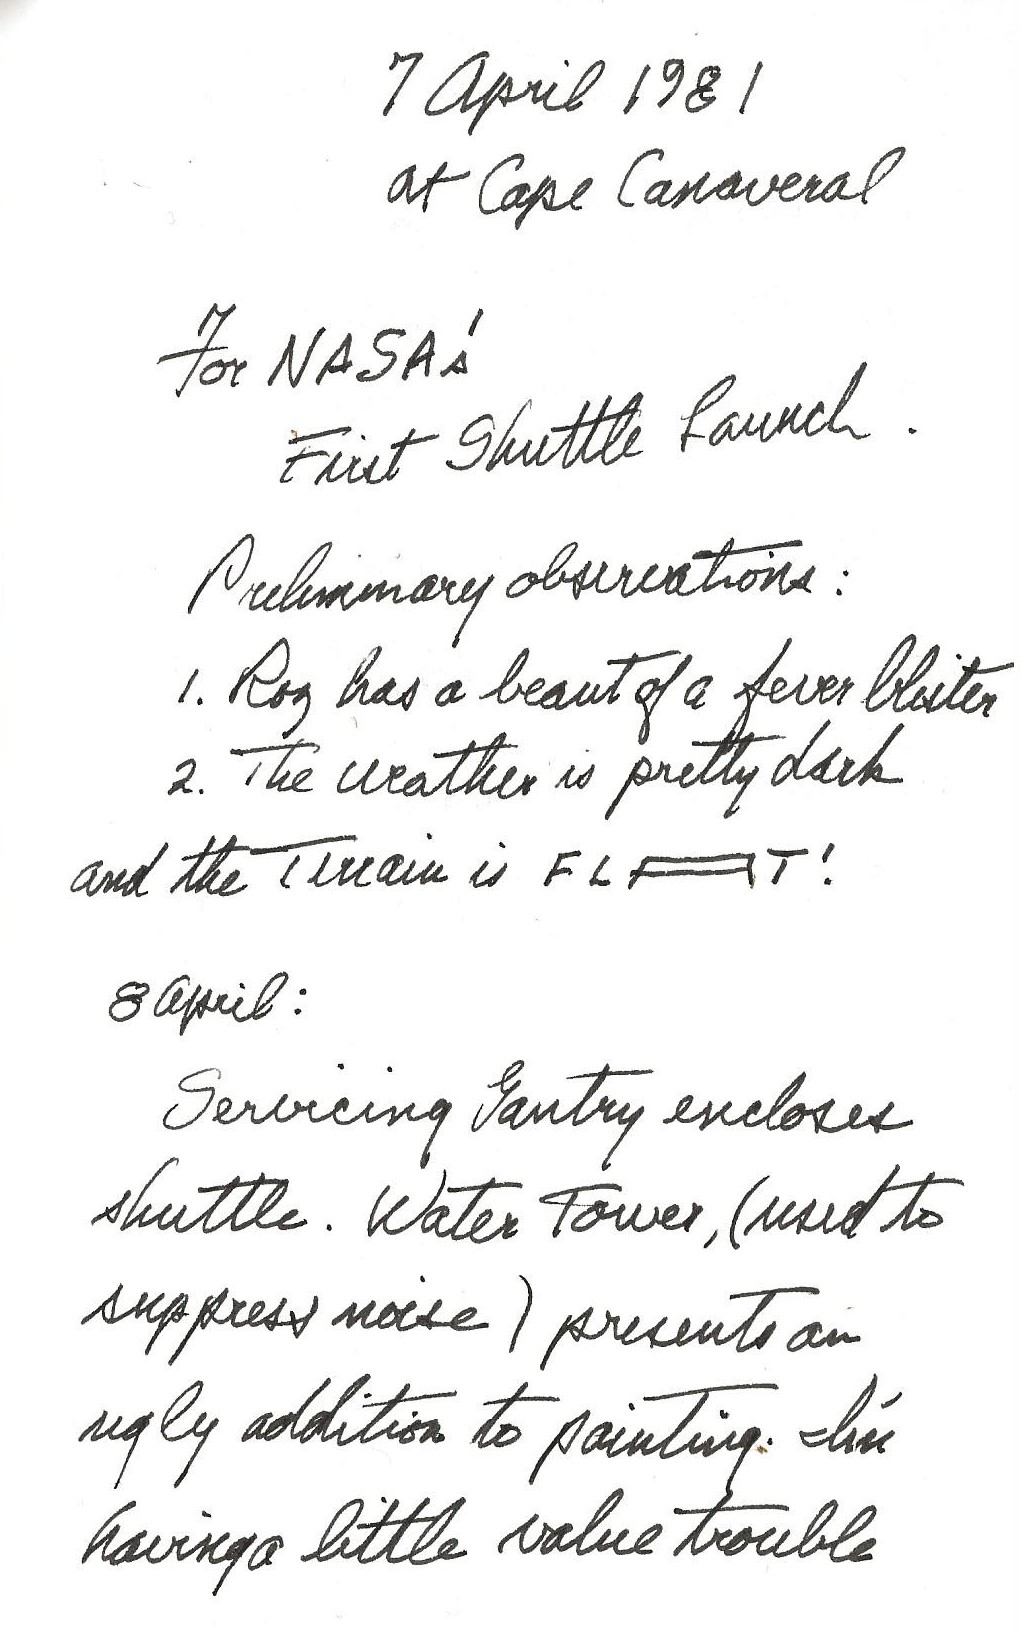 7 April 1981
at Cape Canaveral
For NASA's
First Shuttle Launch.
Preliminary observations:
1. Roz has a beaut of a fever blister
2. The weather is pretty dark
and the Terrain is FLAT!
8 April:
Servicing Gantry encloses
shuttle. Water Tower, (used to
suppress noise) presents an
ugly addition to painting. I'm
having a little value trouble